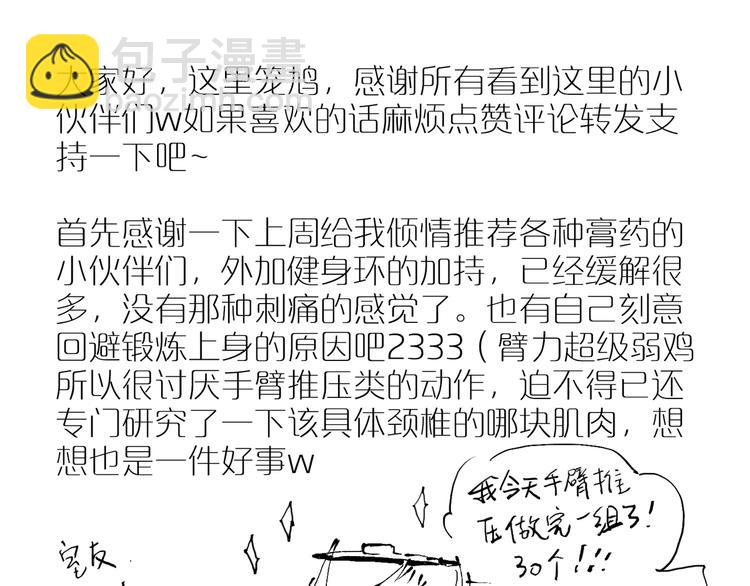 包子漫畫
baozimh.com
大家好，这里笼鸠，感谢所有看到这里的小
伙伴们w如果喜欢的话麻烦点赞评论转发支
持一下吧~
首先感谢一下上周给我倾情推荐各种膏药的
小伙伴们，外加健身环的加持，已经缓解很
多，没有那种刺痛的感觉了。也有自己刻意
回避锻炼上身的原因吧2333（臂力超级弱鸡
所以很讨厌手臂推压类的动作，迫不得已还
专门研究了一下该具体颈椎的哪块肌肉，想
想也是一件好事w
我今天手臂推
压做完一组了！
30个！！！
室友